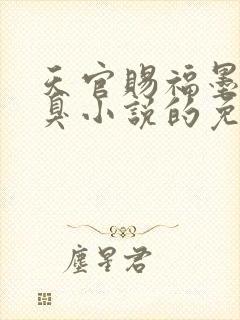 天官賜福墨
臭小說的免
塵星君